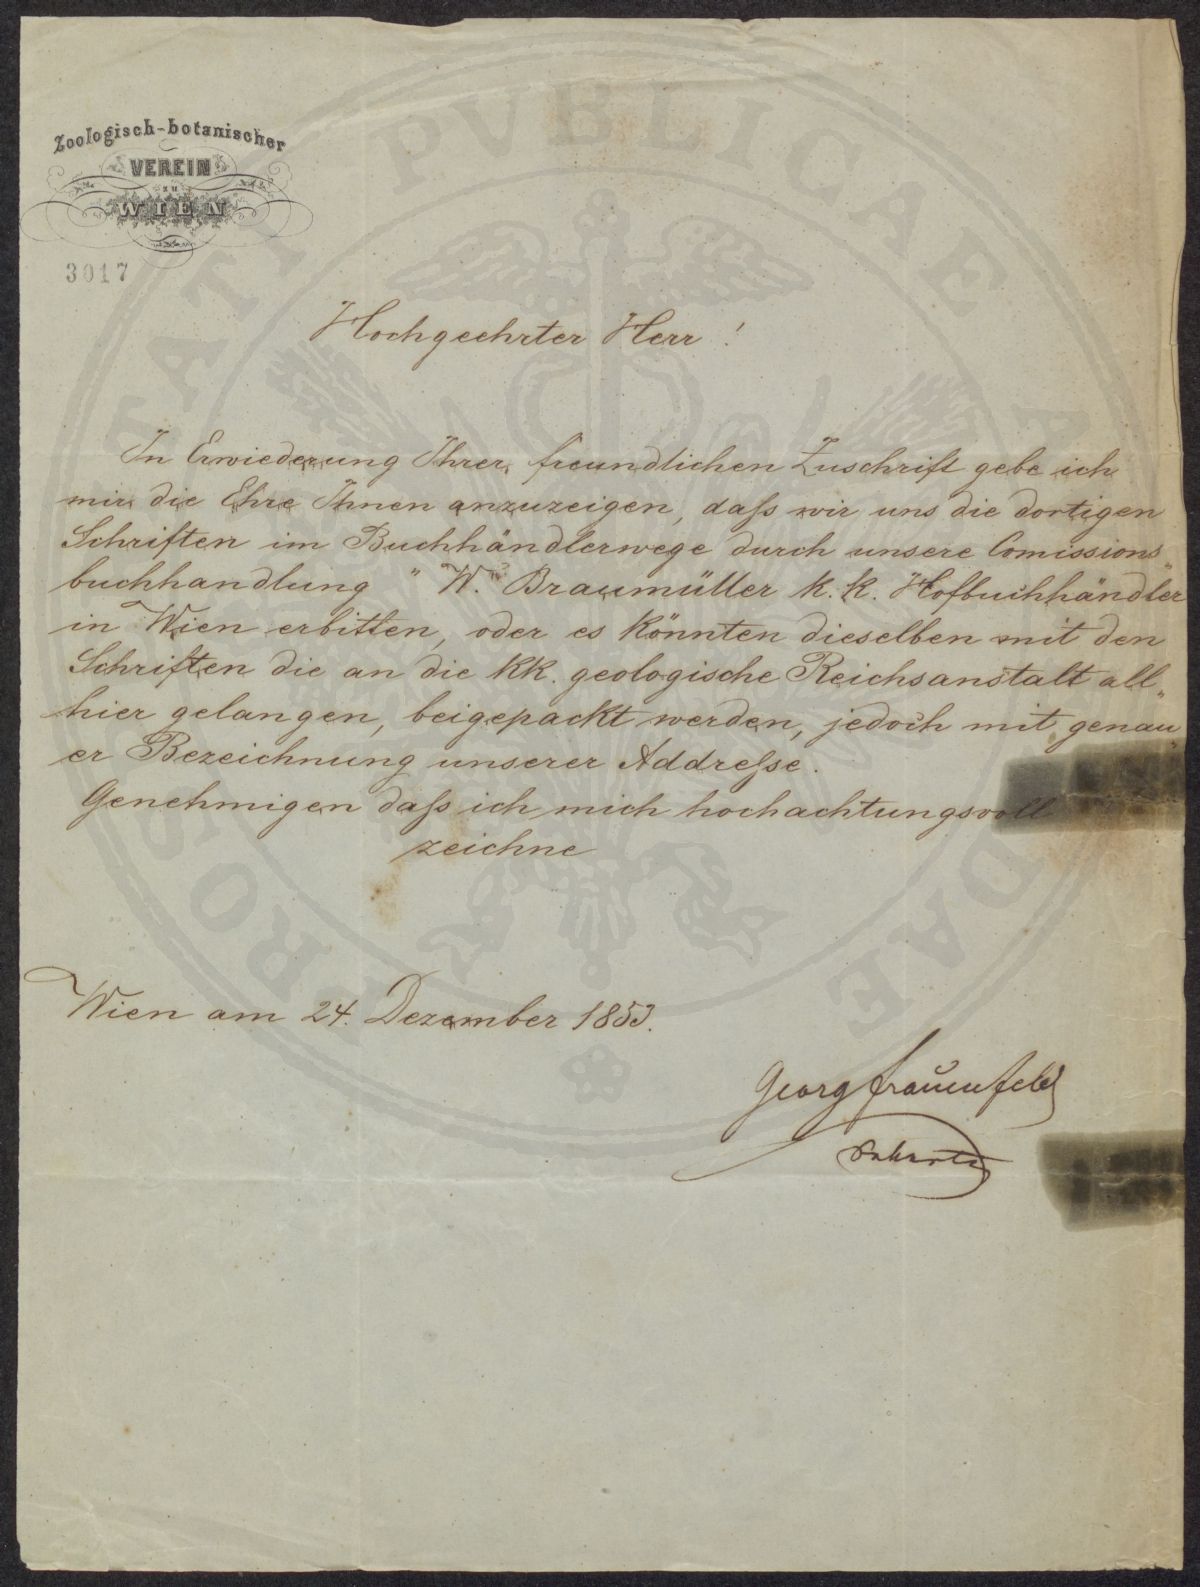 Zoologisch-botanischer
VEREIN
zu
WIEN
3017
Hochgeehrter Herr!
In Erwiederung Ihrer freundlichen Zuschrift gebe ich
mir die Ehre Ihnen anzuzeigen, daſs wir uns die dortigen
Schriften im Buchhändlerwege durch unsere Comissions„
buchhandlung " W. Braumüller k. k. Hofbuchhändler
in Wien erbitten, oder es könnten dieselben mit den
Schriften die an die kk. geologische Reichsanstalt all„
hier gelangen, beigepackt werden, jedoch mit genau„
er Bezeichnung unserer Addreſse.
Genehmigen daſs ich mich hochachtungsvoll
zeichne
Wien am 24. Dezember 1853.
Georg Frauenfeld